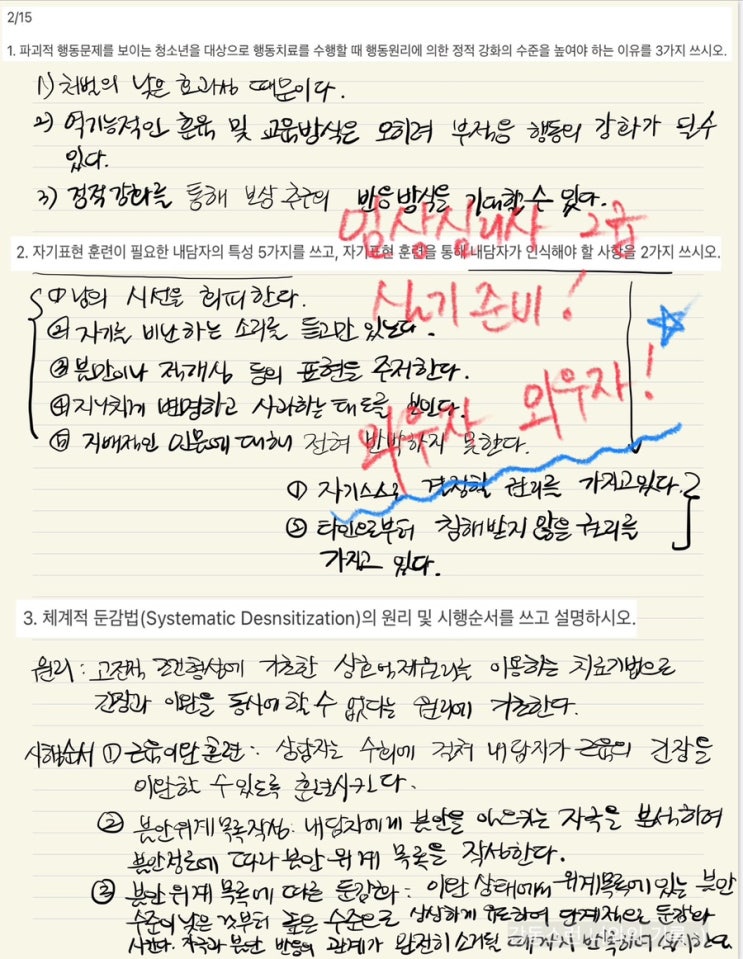 2/15
1. 파괴적 행동문제를 보이는 청소년을 대상으로 행동치료를 수행할 때 행동원리에 의한 정적 강화의 수준을 높여야 하는 이유를 3가지 쓰시오.
1) 처벌의 낮은 효과성 때문이다.
2) 역기능적인 훈육 및 교육방식은 오히려 부적응 행동의 강화가 될 수
있다.
3) 정적강화를 통해 보상 추구의 반응방식을 기대할 수 있다.
임상심리사 2급
2. 자기표현 훈련이 필요한 내담자의 특성 5가지를 쓰고, 자기표현 훈련을 통해 내담자가 인식해야 할 사항을 2가지 쓰시오.
실기 준비!
① 남의 시선을 회피한다.
② 자기를 비난하는 소리를 듣고만 있는다.
③ 불만이나 적개심 등의 표현을 주저한다.
④ 지나치게 변명하고 사과하는 태도를 보인다.
외우자 외우자!
⑤ 지배적인 인물에 대해 전혀 반박하지 못한다.
① 자기 스스로 결정할 권리를 가지고 있다.
② 타인으로부터 침해받지 않을 권리를
가지고 있다.
3. 체계적 둔감법(Systematic Desnsitization)의 원리 및 시행순서를 쓰고 설명하시오.
원리 : 고전적 조건형성에 기초한 상호억제원리를 이용하는 치료기법으로
긴장과 이완을 동시에 할 수 없다는 원리에 기초한다.
시행순서 ① 근육이완훈련 : 상담자는 수회에 걸쳐 내담자가 근육의 긴장을
이완할 수 있도록 훈련시킨다.
② 불안위계목록작성 : 내담자에게 불안을 일으키는 자극을 분석하여
불안정도에 따라 불안 위계 목록을 작성한다.
③ 불안 위계 목록에 따른 둔감화 : 이완 상태에서 위계목록에 있는 불안
수준이 낮은 것부터 높은 수준으로 상상하게 유도하여 단계적으로 둔감화
시킨다. 자극과 불안 반응의 관계가 완전히 소거될 때까지 반복하여 실시한다